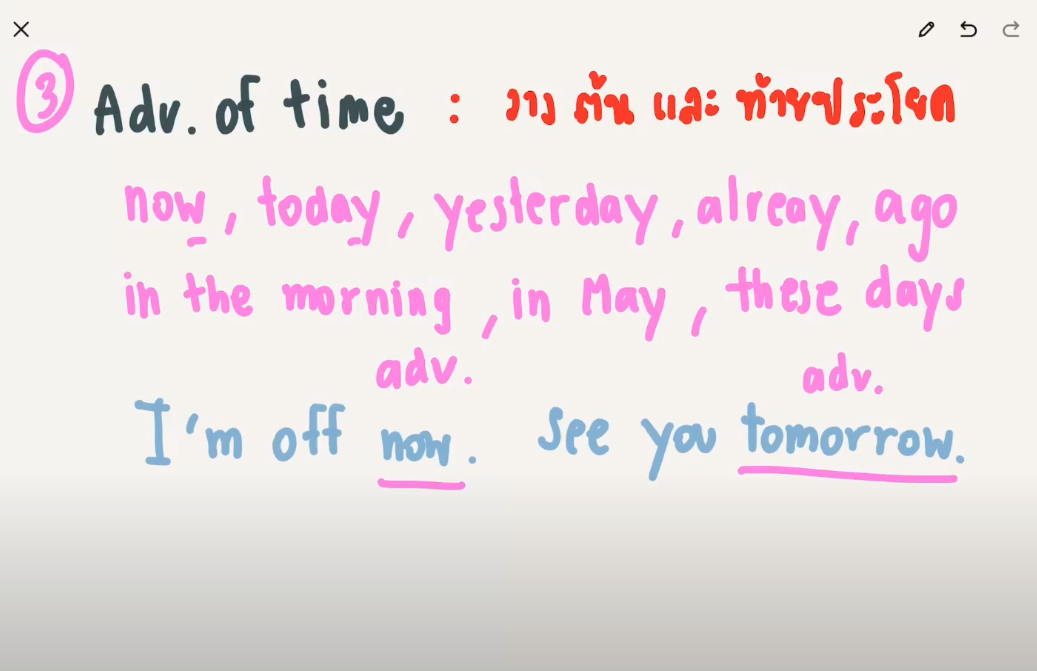 3 Adv. of time : วาง ต้น และ ท้ายประโยค
now, today, yesterday, alreay, ago
in the morning, in May, these days
adv. adv.
I'm off now. See you tomorrow.